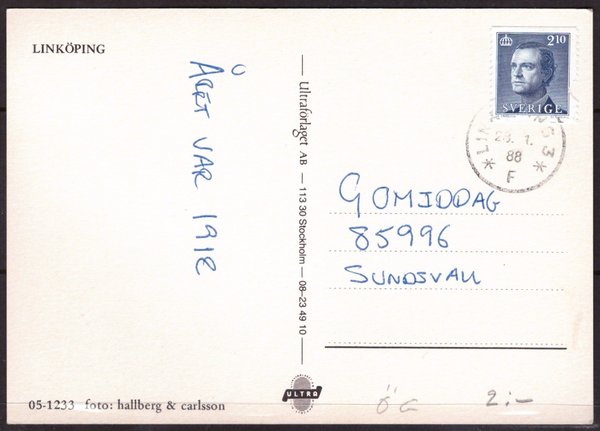 LINKÖPING
ÅRET VAR 1918
Ultraförlaget AB — 113 30 Stockholm — 08–23 49 10
2.10
SVERIGE
LIN NG 3
28. 1.
88
F
GOMIDDAG
85996
SUNDSVALL
ULTRA
05-1233 foto: hallberg & carlsson
ÖG 2:-